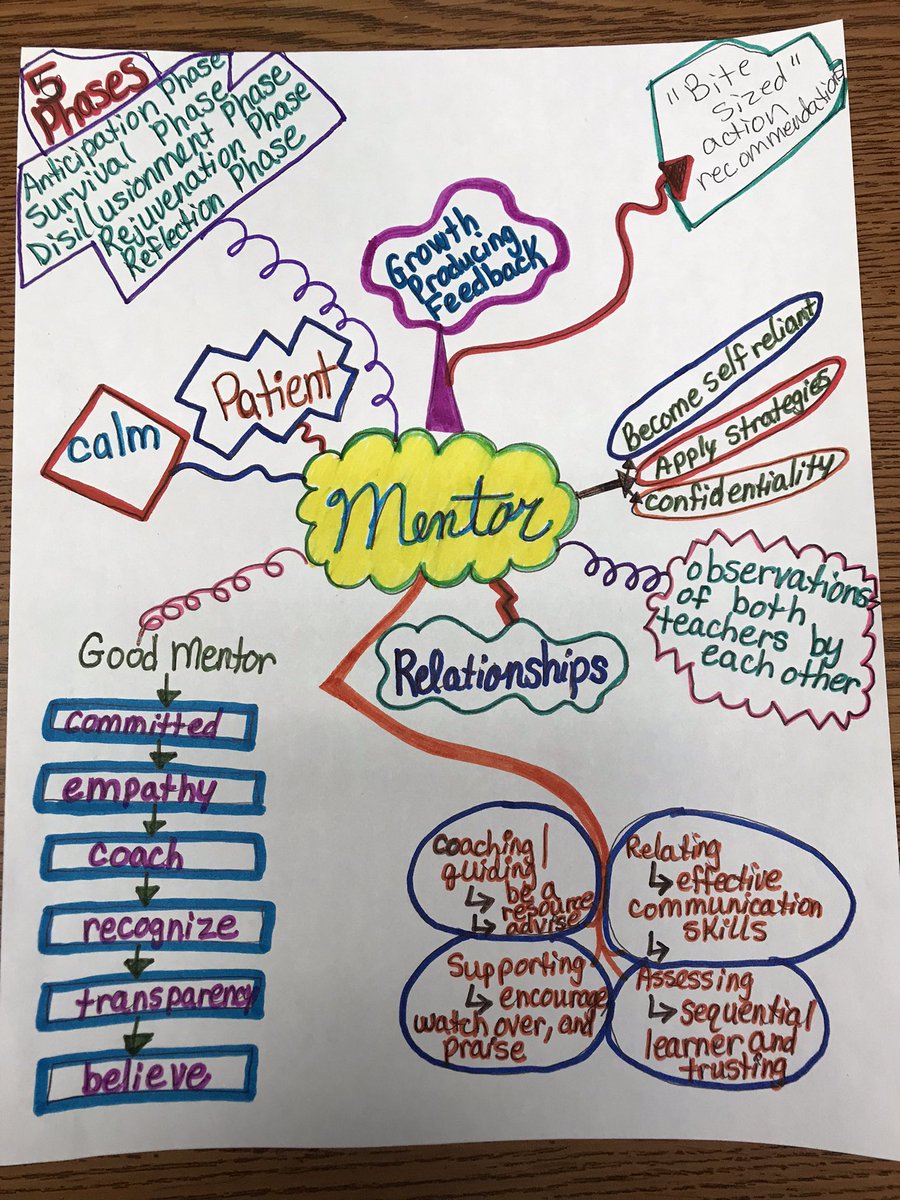 5
Phases
Anticipation Phase
Survival Phase
Disillusionment Phase
Rejuvenation Phase
Reflection Phase
"Bite
sized"
action
recommendations
Growth
Producing
Feedback
Patient
calm
Mentor
Become self reliant
Apply strategies
confidentiality
observations
of both
teachers by
each other
Relationships
Good mentor
committed
empathy
coach
recognize
transparency
believe
Coaching/
guiding
↳ be a
resource
↳ advise
Relating
↳ effective
communication
skills
↳
Supporting
↳ encourage,
watch over, and
praise
Assessing
↳ sequential
learner and
trusting